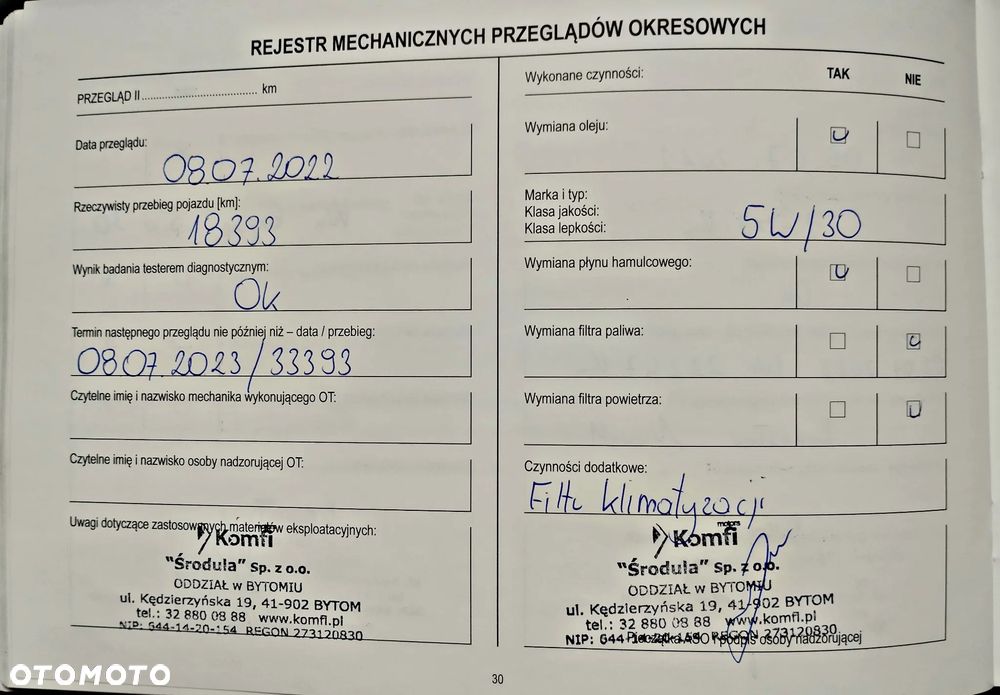 REJESTR MECHANICZNYCH PRZEGLĄDÓW OKRESOWYCH
PRZEGLĄD II.................................... km
Data przeglądu:
08.07.2022
Rzeczywisty przebieg pojazdu [km]:
18393
Wynik badania testerem diagnostycznym:
Ok
Termin następnego przeglądu nie później niż – data / przebieg:
08.07.2023/33393
Czytelne imię i nazwisko mechanika wykonującego OT:
Czytelne imię i nazwisko osoby nadzorującej OT:
Uwagi dotyczące zastosowanych materiałów eksploatacyjnych:
Komfi
"Środula" Sp. z o.o.
ODDZIAŁ w BYTOMIU
ul. Kędzierzyńska 19, 41-902 BYTOM
tel.: 32 880 08 88 www.komfi.pl
NIP: 644-14-20-154 REGON 273120830
Wykonane czynności: TAK NIE
Wymiana oleju:
Marka i typ:
Klasa jakości:
Klasa lepkości:
5W/30
Wymiana płynu hamulcowego:
Wymiana filtra paliwa:
Wymiana filtra powietrza:
Czynności dodatkowe:
Filtr klimatyzacji
Komfi motors
"Środula" Sp. z o.o.
ODDZIAŁ w BYTOMIU
ul. Kędzierzyńska 19, 41-902 BYTOM
tel.: 32 880 08 88 www.komfi.pl
NIP: 644-14-20-154 REGON 273120830
Pieczątka ASO i podpis osoby nadzorującej
30
OTOMOTO